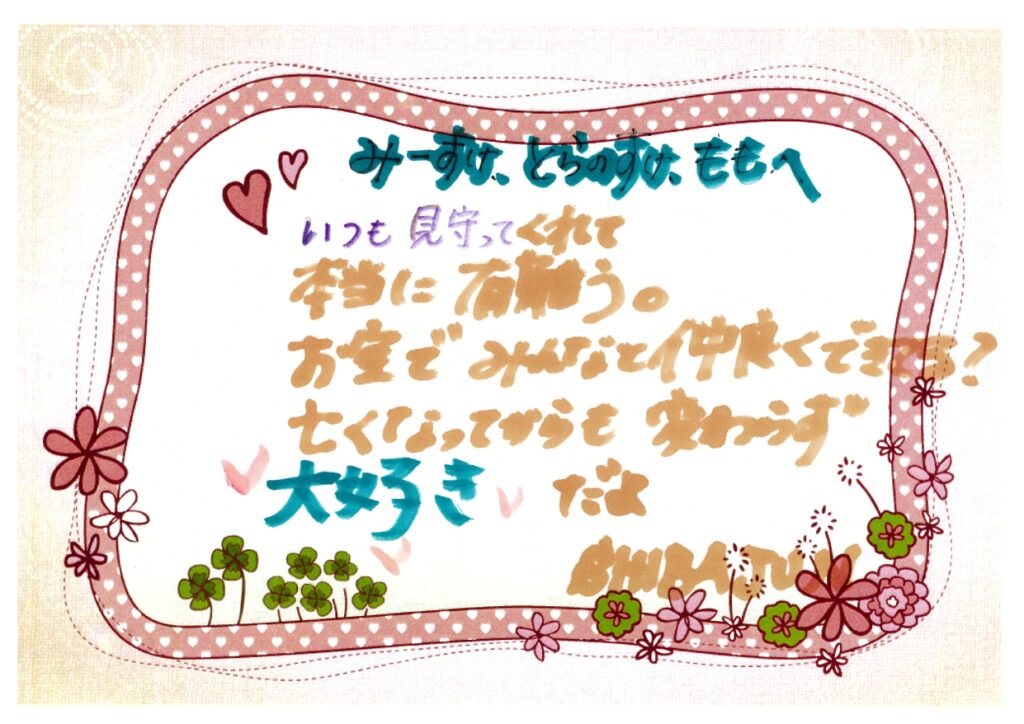 みーすけ、とらのすけ、ももへ
いつも見守ってくれて
本当に有難う。
お空でみんなと仲良くできてる?
亡くなってからも変わらず
大好きだよ